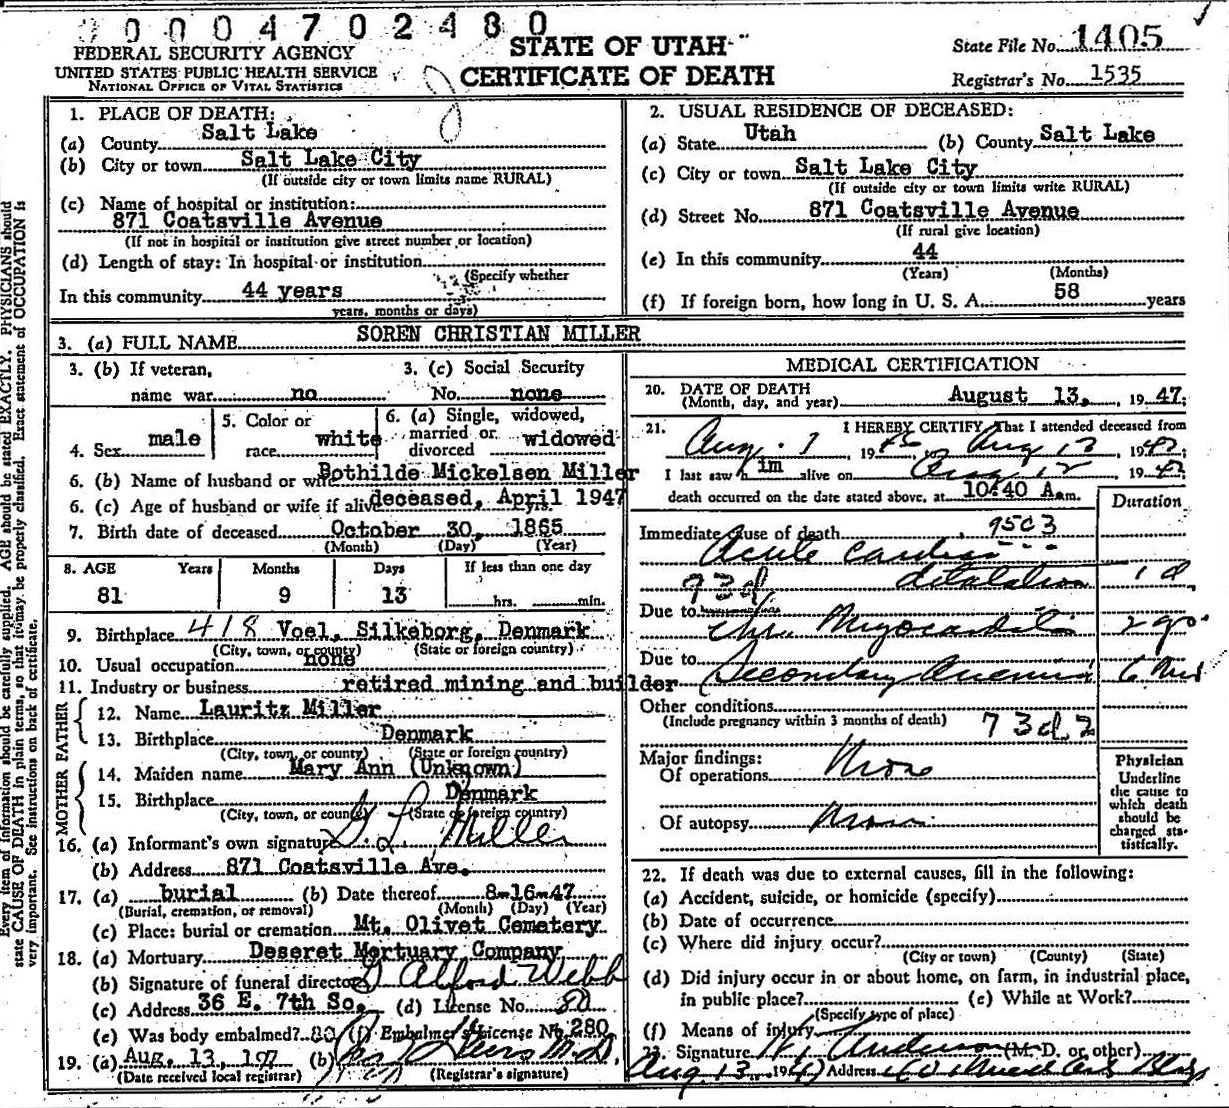 0004702480
FEDERAL SECURITY AGENCY
UNITED STATES PUBLIC HEALTH SERVICE
NATIONAL OFFICE OF VITAL STATISTICS
STATE OF UTAH
CERTIFICATE OF DEATH
State File No. 1405
Registrar's No. 1535
1. PLACE OF DEATH:
(a) County Salt Lake
(b) City or town Salt Lake City
(If outside city or town limits name RURAL)
(c) Name of hospital or institution:
871 Coatsville Avenue
(If not in hospital or institution give street number or location)
(d) Length of stay: In hospital or institution
(Specify whether
In this community 44 years
years, months or days)
2. USUAL RESIDENCE OF DECEASED:
(a) State Utah (b) County Salt Lake
(c) City or town Salt Lake City
(If outside city or town limits write RURAL)
(d) Street No. 871 Coatsville Avenue
(If rural give location)
(e) In this community 44
(Years) (Months)
(f) If foreign born, how long in U. S. A. 58 years
3. (a) FULL NAME SOREN CHRISTIAN MILLER
3. (b) If veteran, 3. (c) Social Security
name war no No. none
4. Sex male 5. Color or race white 6. (a) Single, widowed, married or divorced widowed
6. (b) Name of husband or wife Bothilde Mickelsen Miller
6. (c) Age of husband or wife if alive deceased, April 1947 yrs.
7. Birth date of deceased October 30, 1865
(Month) (Day) (Year)
8. AGE Years Months Days If less than one day
81 9 13 hrs. min.
9. Birthplace 418 Voel, Silkeborg, Denmark
(City, town, or county) (State or foreign country)
10. Usual occupation none
11. Industry or business retired mining and builder
FATHER
12. Name Lauritz Miller
13. Birthplace Denmark
(City, town, or county) (State or foreign country)
MOTHER
14. Maiden name Mary Ann (Unknown)
15. Birthplace Denmark
(City, town, or county) (State or foreign country)
16. (a) Informant's own signature G. L. Miller
(b) Address 871 Coatsville Ave.
17. (a) burial (b) Date thereof 8-16-47
(Burial, cremation, or removal) (Month) (Day) (Year)
(c) Place: burial or cremation Mt. Olivet Cemetery
18. (a) Mortuary Deseret Mortuary Company
(b) Signature of funeral director D Alford Webb
(c) Address 36 E. 7th So. (d) License No. 80
(e) Was body embalmed? 80 (f) Embalmer's License No. 280
19. (a) Aug. 13, 197 (b)
(Date received local registrar) (Registrar's signature)
MEDICAL CERTIFICATION
20. DATE OF DEATH
(Month, day, and year) August 13, 1947;
21. I HEREBY CERTIFY, That I attended deceased from
Aug. 1 19 Aug 12, 1947
I last saw him alive on Aug 12 1947
death occurred on the date stated above, at 10:40 A.m.
Duration
Immediate cause of death 95C3
Acute cardiac
73d dilatation 1 d
Due to
Chr. Myocarditis 2 yrs.
Due to Secondary Anemia 6 Mos
Other conditions
(Include pregnancy within 3 months of death) 73d2
Major findings:
Of operations None
Of autopsy None
Physician
Underline
the cause to
which death
should be
charged sta-
tistically.
22. If death was due to external causes, fill in the following:
(a) Accident, suicide, or homicide (specify)
(b) Date of occurrence
(c) Where did injury occur?
(City or town) (County) (State)
(d) Did injury occur in or about home, on farm, in industrial place,
in public place? (e) While at Work?
(Specify type of place)
(f) Means of injury
23. Signature Anderson (M. D. or other)
Aug 13, 1947 Address
Every item of information should be carefully supplied. AGE should be stated EXACTLY. PHYSICIANS should
state CAUSE OF DEATH in plain terms, so that it may be properly classified. Exact statement of OCCUPATION is
very important. See instructions on back of certificate.